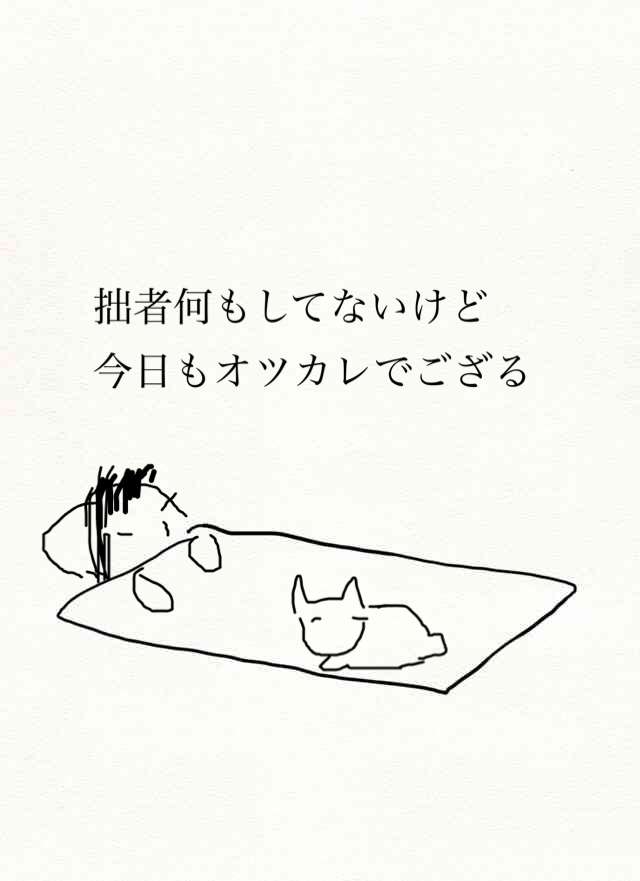 拙者何もしてないけど
今日もオツカレでござる